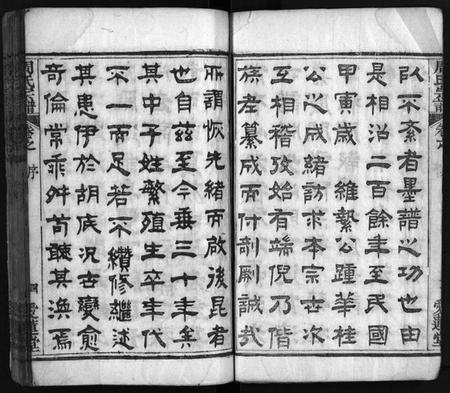 以不紊者墨譜之功也由
是相沿二百餘年至民國
甲寅歲 維繫公踵華桂
公之成緒訪求本宗世次
互相稽攷始有端倪乃偕
族老纂成而付剞劂誠哉
所謂恢先緒而啟後昆者
也自茲至今垂三十年矣
其中子姓繁殖生卒年代
不一而足若不纘修繼述
其患伊於胡底況世變愈
奇倫常乖舛苟聽其渙焉
周氏宗譜 卷之 序 四 愛蓮堂